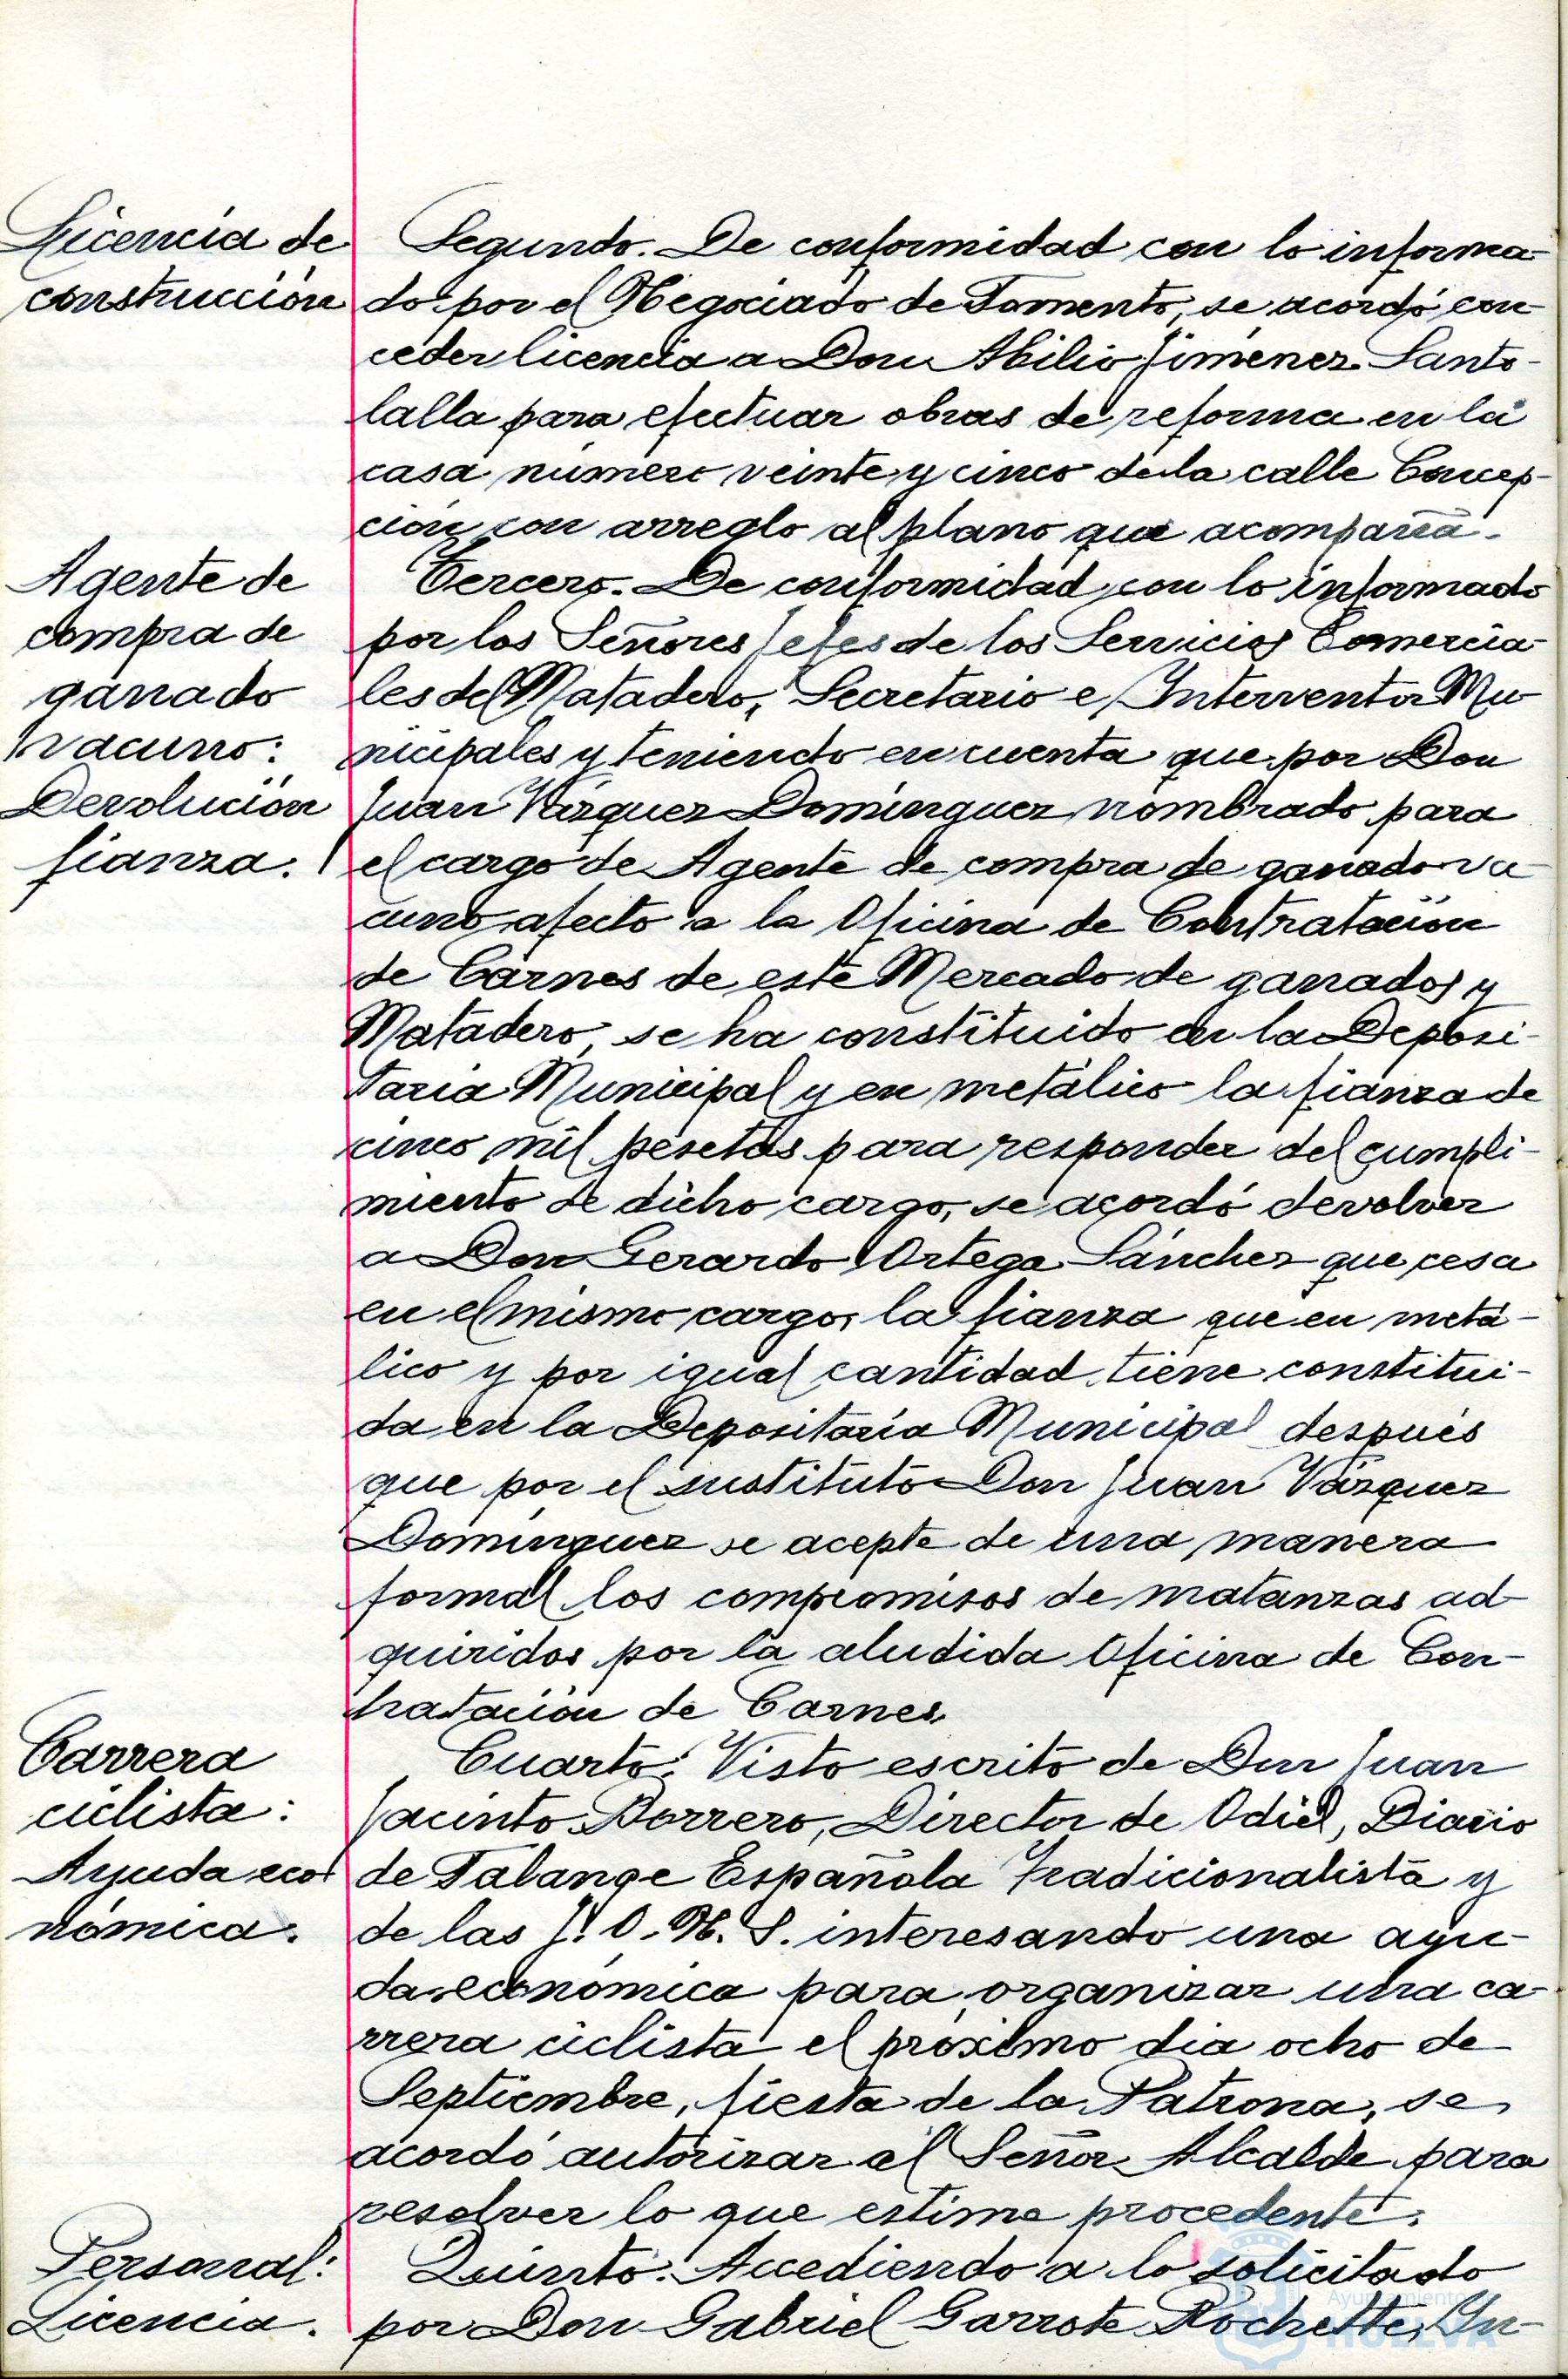 Licencia de
construcción
Segundo. De conformidad con lo informa-
do por el Negociado de Fomento, se acordó con
ceder licencia a Don Abilio Jiménez Santo-
lalla para efectuar obras de reforma en la
casa número veinte y cinco de la calle Concep-
ción con arreglo al plano que acompaña.
Agente de
compra de
ganado
vacuno:
Devolución
fianza.
Tercero. De conformidad con lo informado
por los Señores Jefes de los Servicios Comercia-
les del Matadero, Secretario e Interventor Mu-
nicipales y teniendo en cuenta que por Don
Juan Vázquez Domínguez nombrado para
el cargo de Agente de compra de ganado va-
cuno afecto a la Oficina de Contratación
de Carnes de este Mercado de ganados y
Matadero, se ha constituido en la Deposi-
taria Municipal y en metálico la fianza de
cinco mil pesetas para responder del cumpli-
miento de dicho cargo, se acordó devolver
a Don Gerardo Ortega Sánchez que cesa
en el mismo cargo, la fianza que en metá-
lico y por igual cantidad tiene constitui-
da en la Depositaría Municipal después
que por el sustituto Don Juan Vázquez
Domínguez se acepte de una manera
formal los compromisos de matanzas ad-
quiridos por la aludida Oficina de Con-
tratación de Carnes.
Carrera
ciclista:
Ayuda eco-
nómica.
Cuarto. Visto escrito de Don Juan
Jacinto Borrero, Director de Odiel, Diario
de Falange Española Tradicionalista y
de las J. O. N. S. interesando una ayu-
da económica para organizar una ca-
rrera ciclista el próximo dia ocho de
Septiembre, fiesta de la Patrona, se
acordó autorizar al Señor Alcalde para
resolver lo que estime procedente.
Personal:
Licencia.
Quinto. Accediendo a lo solicitado
por Don Gabriel Garrote Rochette, In-
Ayuntamiento
HUELVA